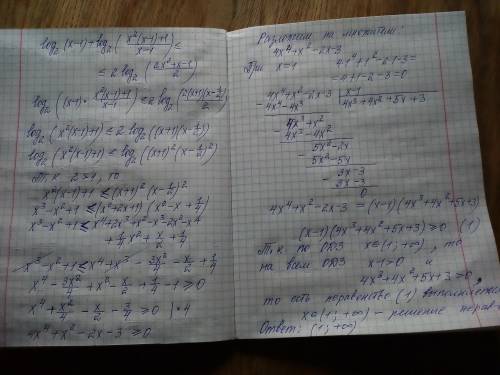 log₂(x-1) + log₂(x²(x-1)+1 / x-1) ≤
≤ 2 log₂(2x²+x-1 / 2)
log₂((x-1)· x²(x-1)+1 / x-1) ≤ 2 log₂(2(x+1)(x-½) / 2)
log₂(x²(x-1)+1) ≤ 2 log₂((x+1)(x-½))
log₂(x²(x-1)+1) ≤ log₂((x+1)²(x-½)²)
Т.к 2>1, то
x²(x-1)+1 ≤ (x+1)²(x-½)²
x³-x²+1 ≤ (x²+2x+1)(x²-x+¼)
x³-x²+1 ≤ x⁴+2x³+x²-x³-2x²-x+
+¼x²+x/2+¼
x³-x²+1 ≤ x⁴+x³-3x²/4-x/2+¼
x⁴-3x²/4+x²-x/2+¼-1≥0
x⁴+x²/4-x/2-¾≥0 | ·4
4x⁴+x²-2x-3≥0
Разложим на множители:
4x⁴+x²-2x-3
При x=1 4·1⁴+1²-2·1-3=
=4+1-2-3=0
4x⁴+x²-2x-3 | x-1
4x⁴-4x³ 4x³+4x²+5x+3
4x³+x²
4x³-4x²
5x²-2x
5x²-5x
3x-3
3x-3
0
4x⁴+x²-2x-3=(x-1)(4x³+4x²+5x+3)
(x-1)(4x³+4x²+5x+3)≥0 (1)
Т.к по ОДЗ x∈(1;+∞), то
на всем ОДЗ x-1>0 и
4x³+4x²+5x+3>0,
то есть неравенство (1) выполняется
x∈(1;+∞) - решение
Ответ: (1;+∞)